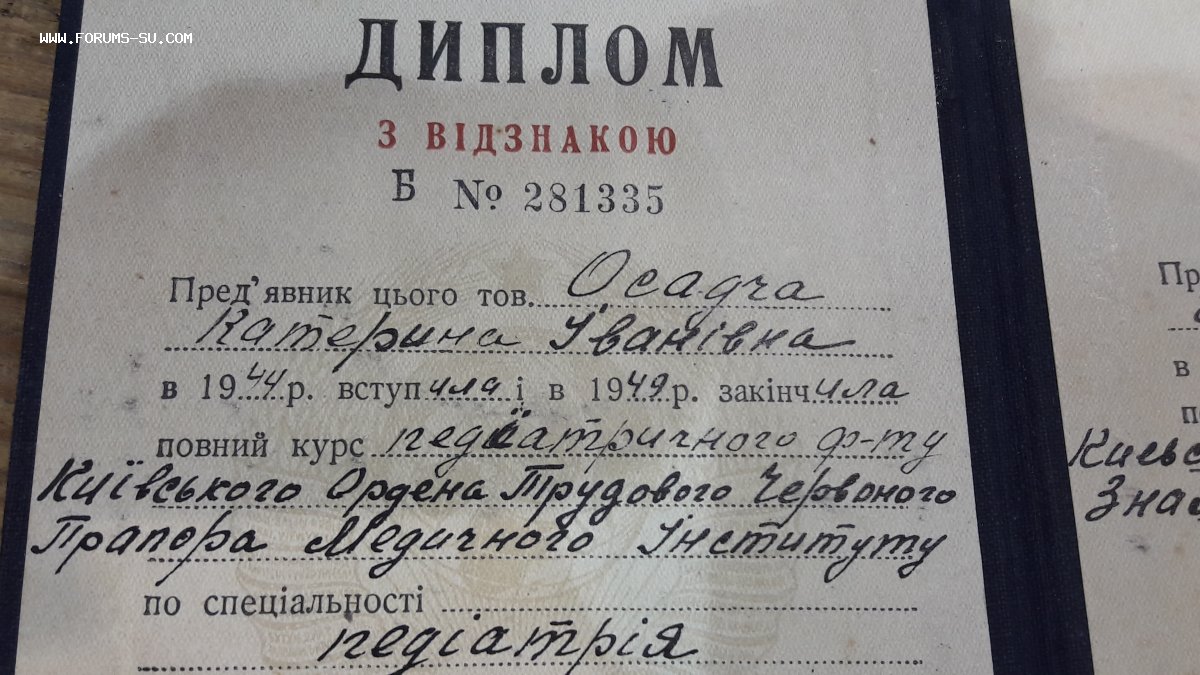 www.forums-su.com
ДИПЛОМ
З ВІДЗНАКОЮ
Б № 281335
Пред'явник цього тов. Осадча
Катерина Іванівна
в 1944 р. вступила і в 1949 р. закінчила
повний курс педіатричного ф-ту
Київського Ордена Трудового Червоного
Прапора Медичного Інституту
по спеціальності
педіатрія
Пр
в
п
Киевс
Знам